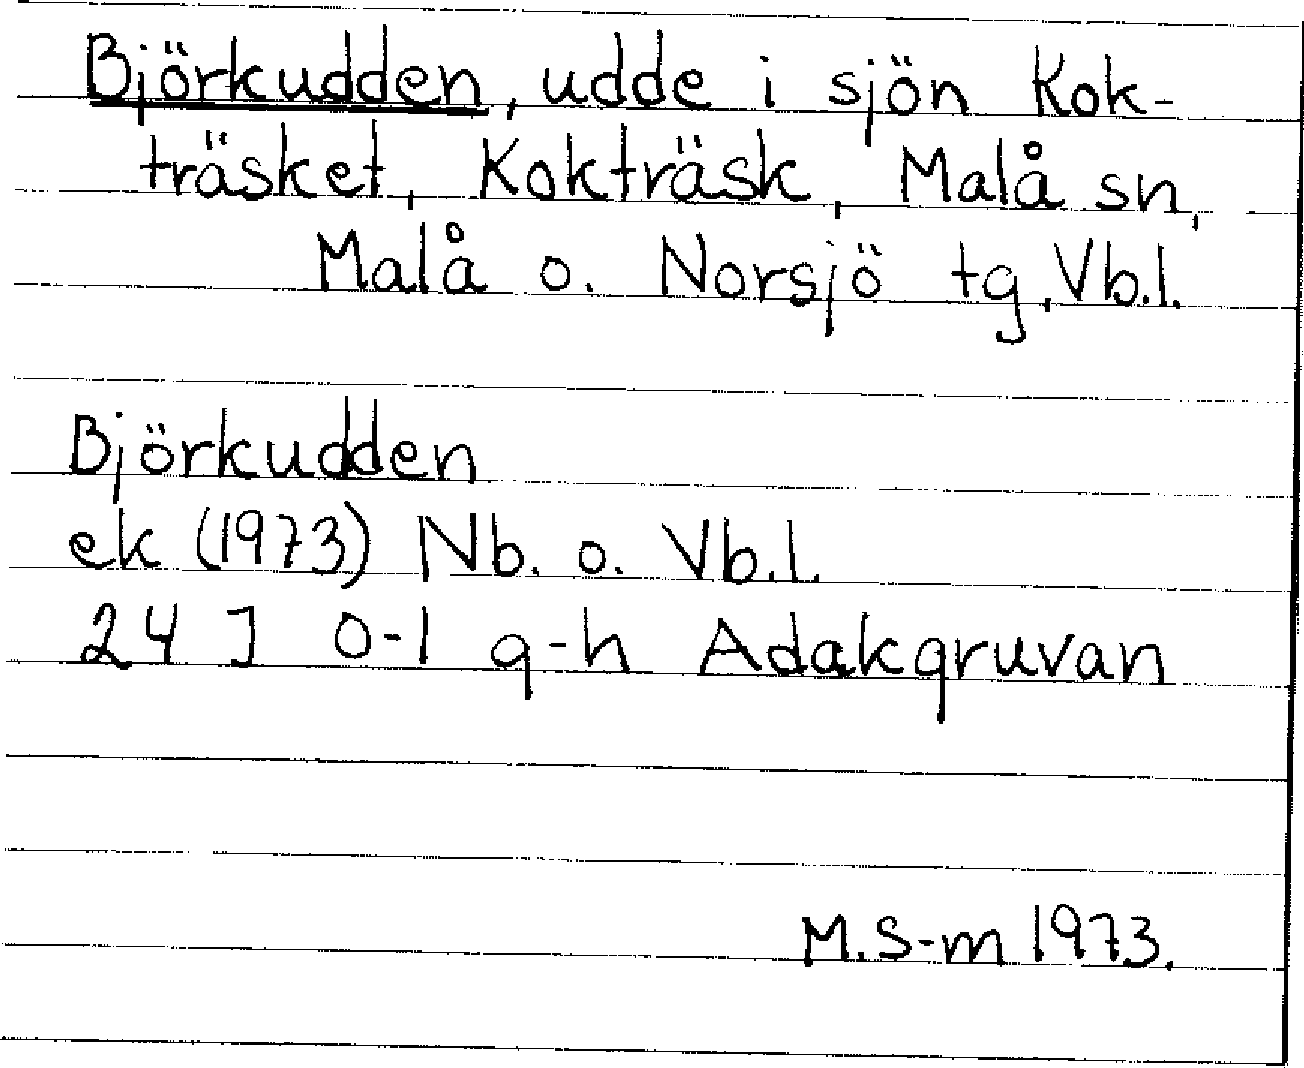 Björkudden, udde i sjön Kok-
träsket, Kokträsk, Malå sn,
Malå o. Norsjö tg, Vb.l.
Björkudden
ek (1973) Nb. o. Vb.l.
24 J 0-1 g-h Adakgruvan
M.S-m 1973.